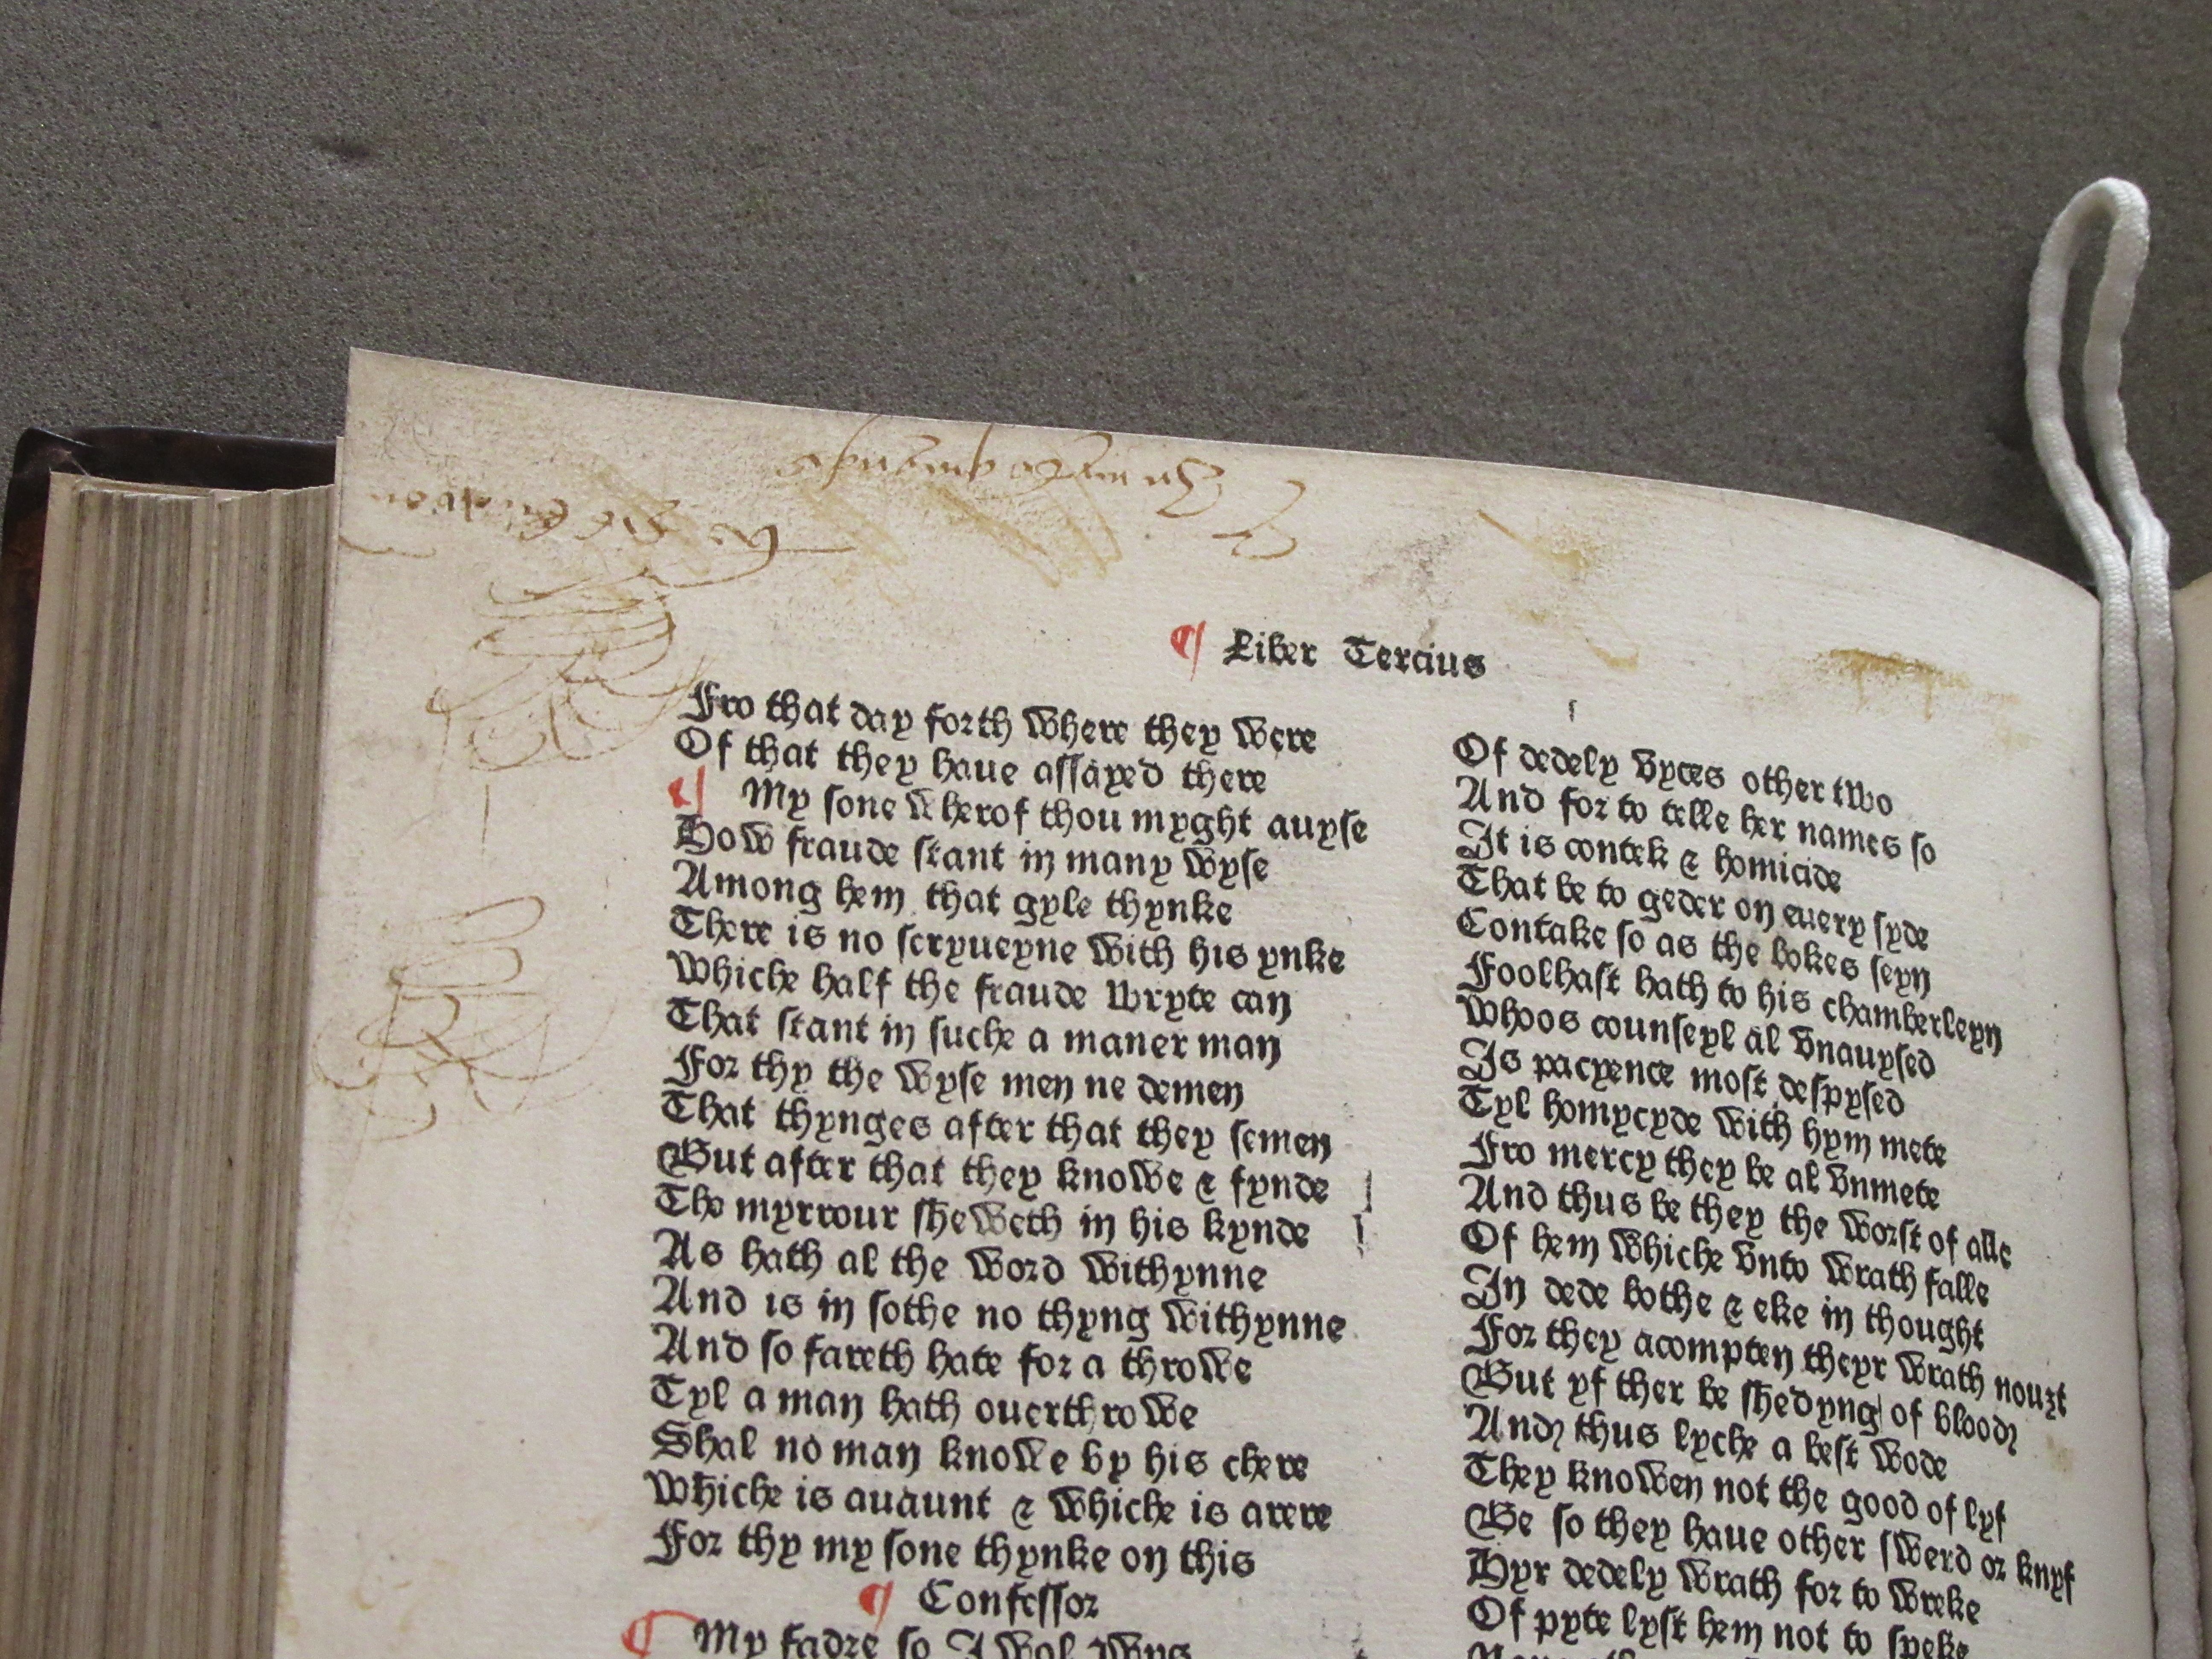 ¶ Liber Tercius
Fro that day forth where they were
Of that they haue assayed there
¶ My sone wherof thou myght auyse
How fraude stant in many wyse
Among hem that gyle thynke
There is no scryueyne with his ynke
Whiche half the fraude wryte can
That stant in suche a maner man
For thy the wyse men ne demen
That thynges after that they semen
But after that they knowe & fynde
The myrrour sheweth in his kynde
As hath al the word withynne
And is in sothe no thyng withynne
And so fareth hate for a throwe
Tyl a man hath ouerthrowe
Shal no man knowe by his chere
Whiche is auaunt & whiche is arere
For thy my sone thynke on this
¶ Confessor
¶ My fadre so I wol ywys
Of dedely vyces other two
And for to telle her names so
It is contek & homicide
That be to geder on euery syde
Contake so as the bokes seyn
Foolhast hath to his chamberleyn
Whoos counseyl al vnauysed
Is pacyence most despysed
Tyl homycyde with hym mete
Fro mercy they be al vnmete
And thus be they the worst of alle
Of hem whiche vnto wrath falle
In dede bothe & eke in thought
For they acompten theyr wrath nouȝt
But yf ther be shedyng of blood
And thus lyche a best wode
They knowen not the good of lyf
Be so they haue other swerd or knyf
Hyr dedely wrath for to wreke
Of pyte lyst hem not to speke